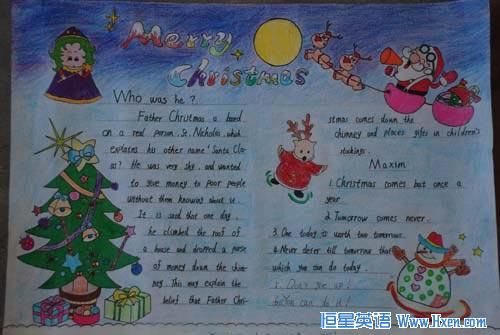 Merry
Christmas
Who was he?
Father Christmas a based
on a real person, St. Nicholas, which
explains his other name 'Santa Cla-
os? He was very shy, and wanted
to give money to poor people
without them knowing about it.
It is said that one day,
he climbed the roof of
a house and dropped a purse
of money down the chim-
ney. This may explain the
belief that Father Chri-
stmas comes down the
chimney and places gifts in children's
stockings.
Maxim
1. Christmas comes but once a
year.
2. Tomorrow comes never.
3. One today is worth two tomorrow.
4. Never defer till tomorrow that
which you can do today.
1. Don't give up!
You can do it!
恒星英语 Www.Hxen.com